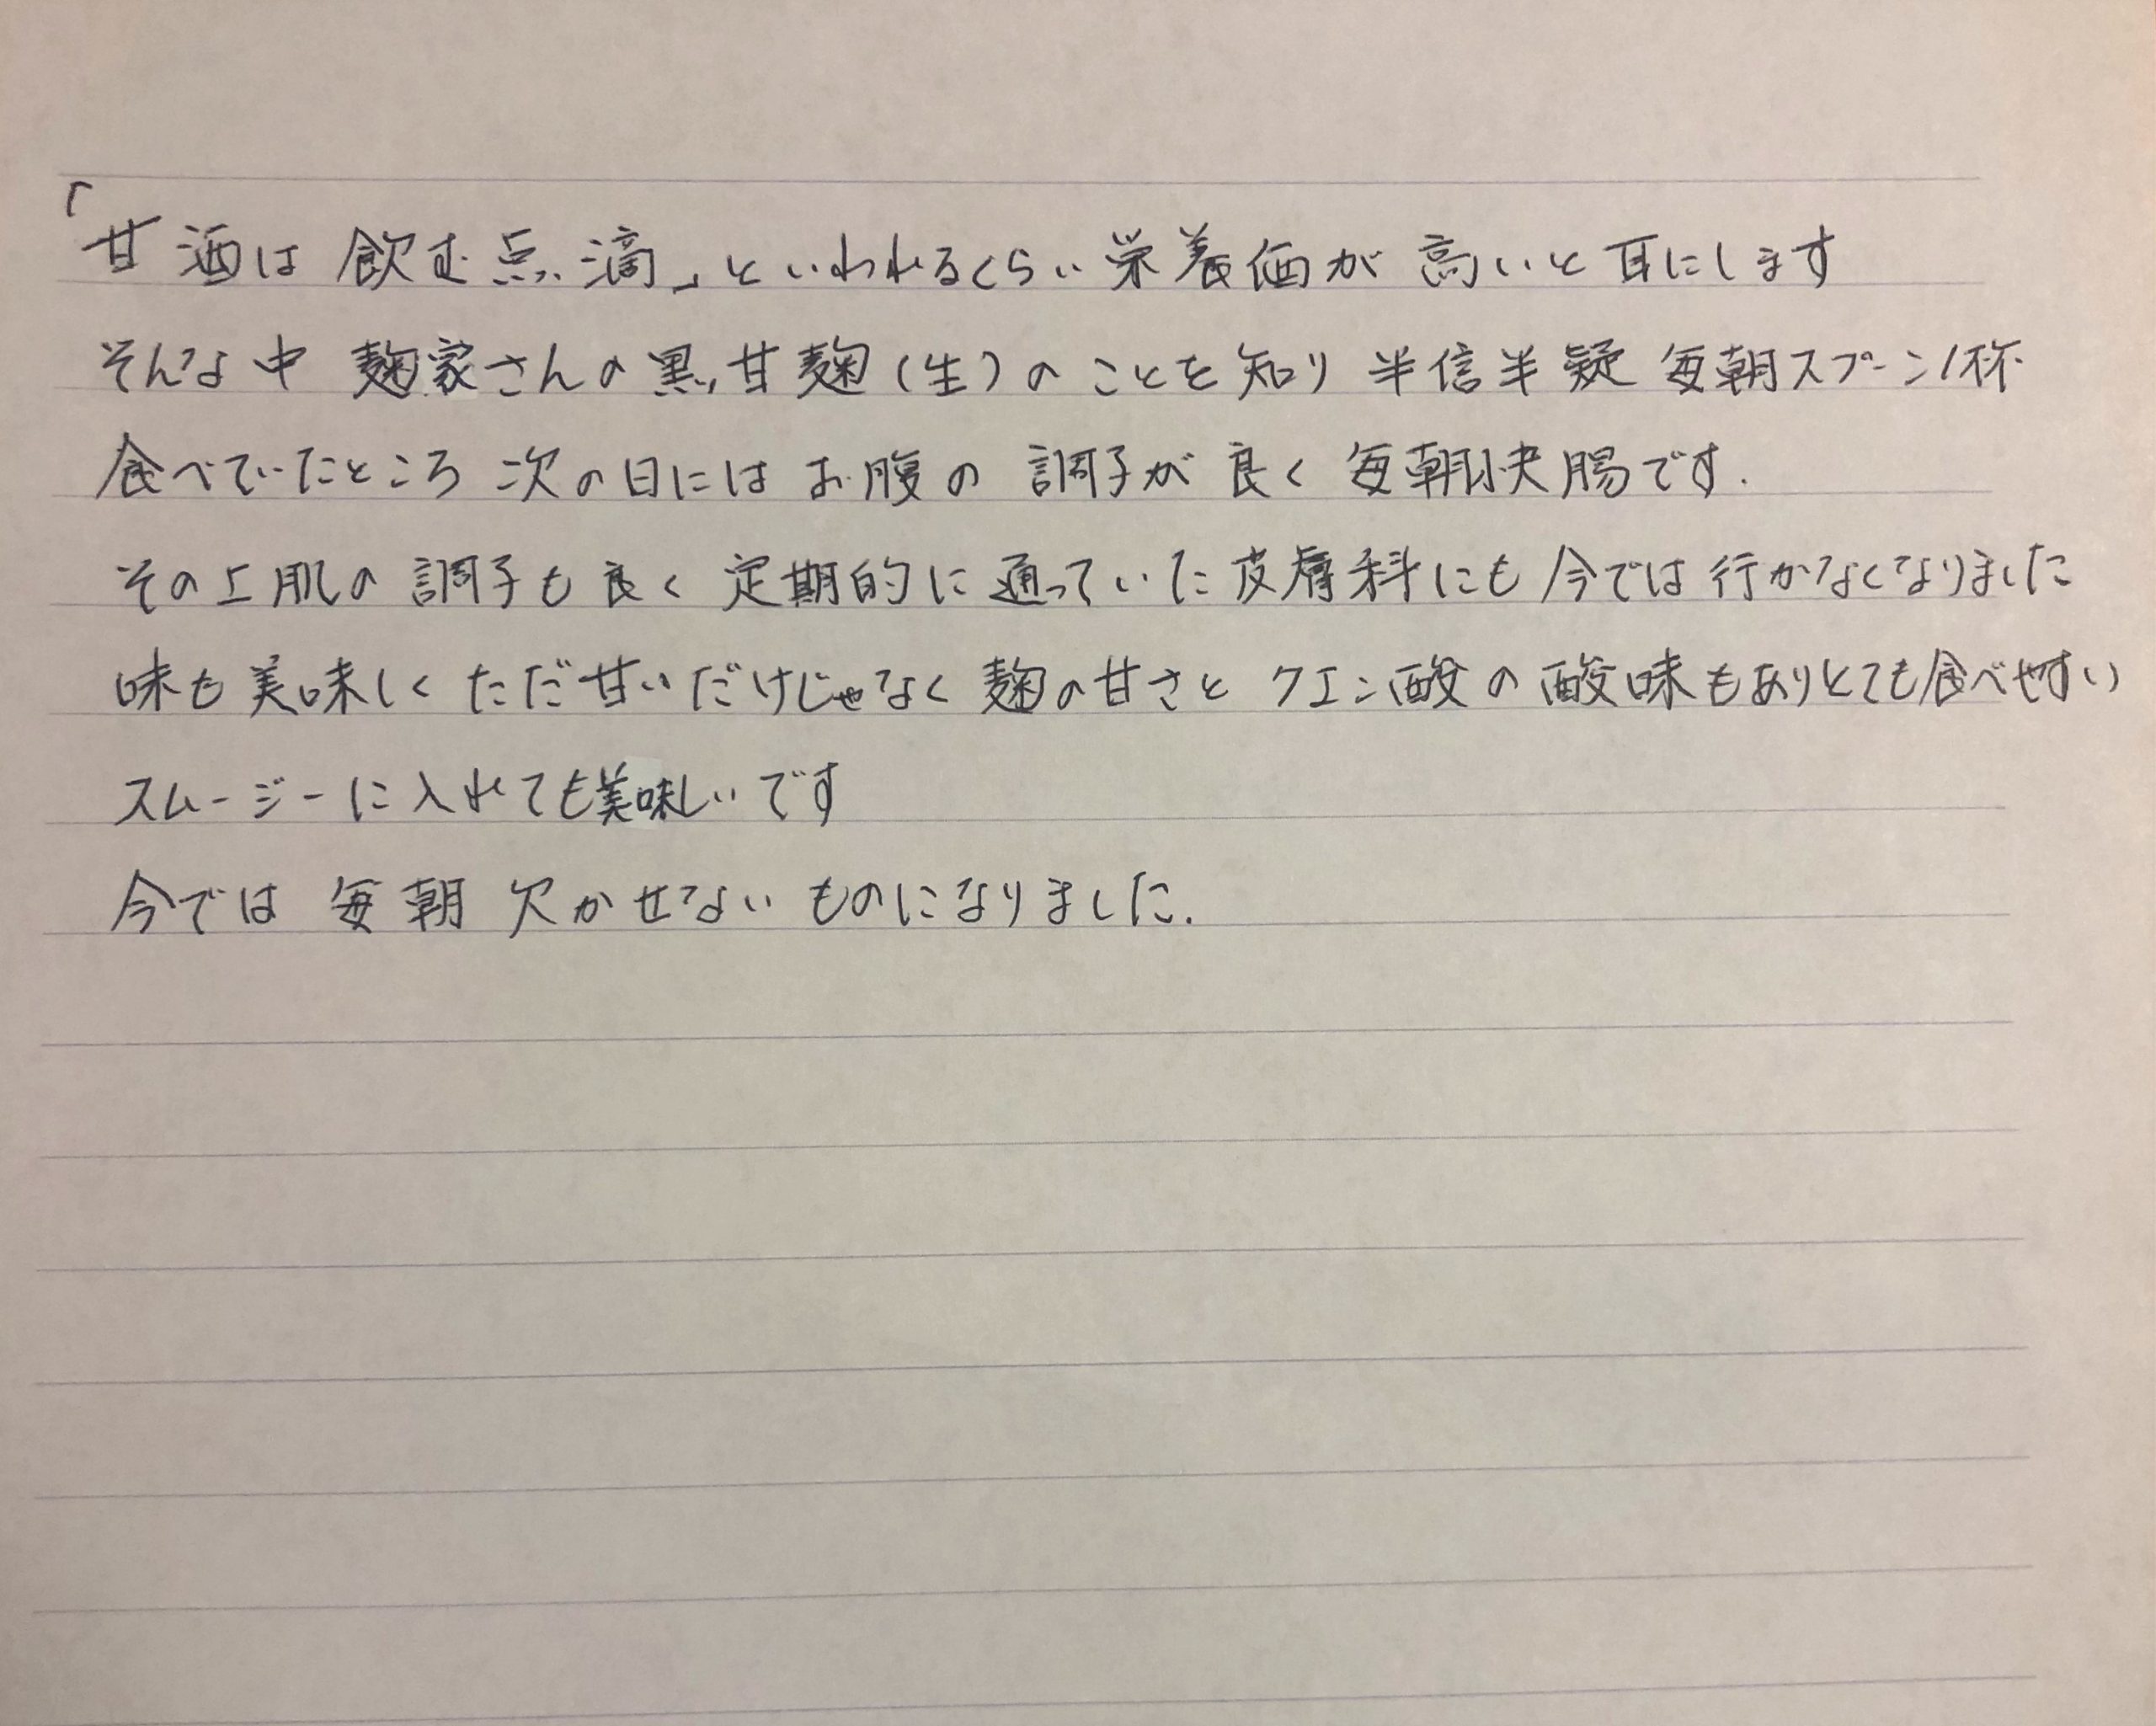 「甘酒は 飲む点滴」といわれるくらい栄養価が 高いと耳にします
そんな中 麹家さんの黒甘麹(生)のことを知り 半信半疑 毎朝スプーン1杯
食べていたところ 次の日には お腹の 調子が 良く 毎朝快腸です.
その上肌の 調子も 良く 定期的に 通っていた皮膚科にも 今では 行かなくなりました
味も美味しく ただ甘いだけじゃなく 麹の甘さと クエン酸の 酸味もありとても食べやすい
スムージーに入れても美味しいです
今では 毎朝 欠かせない ものになりました.